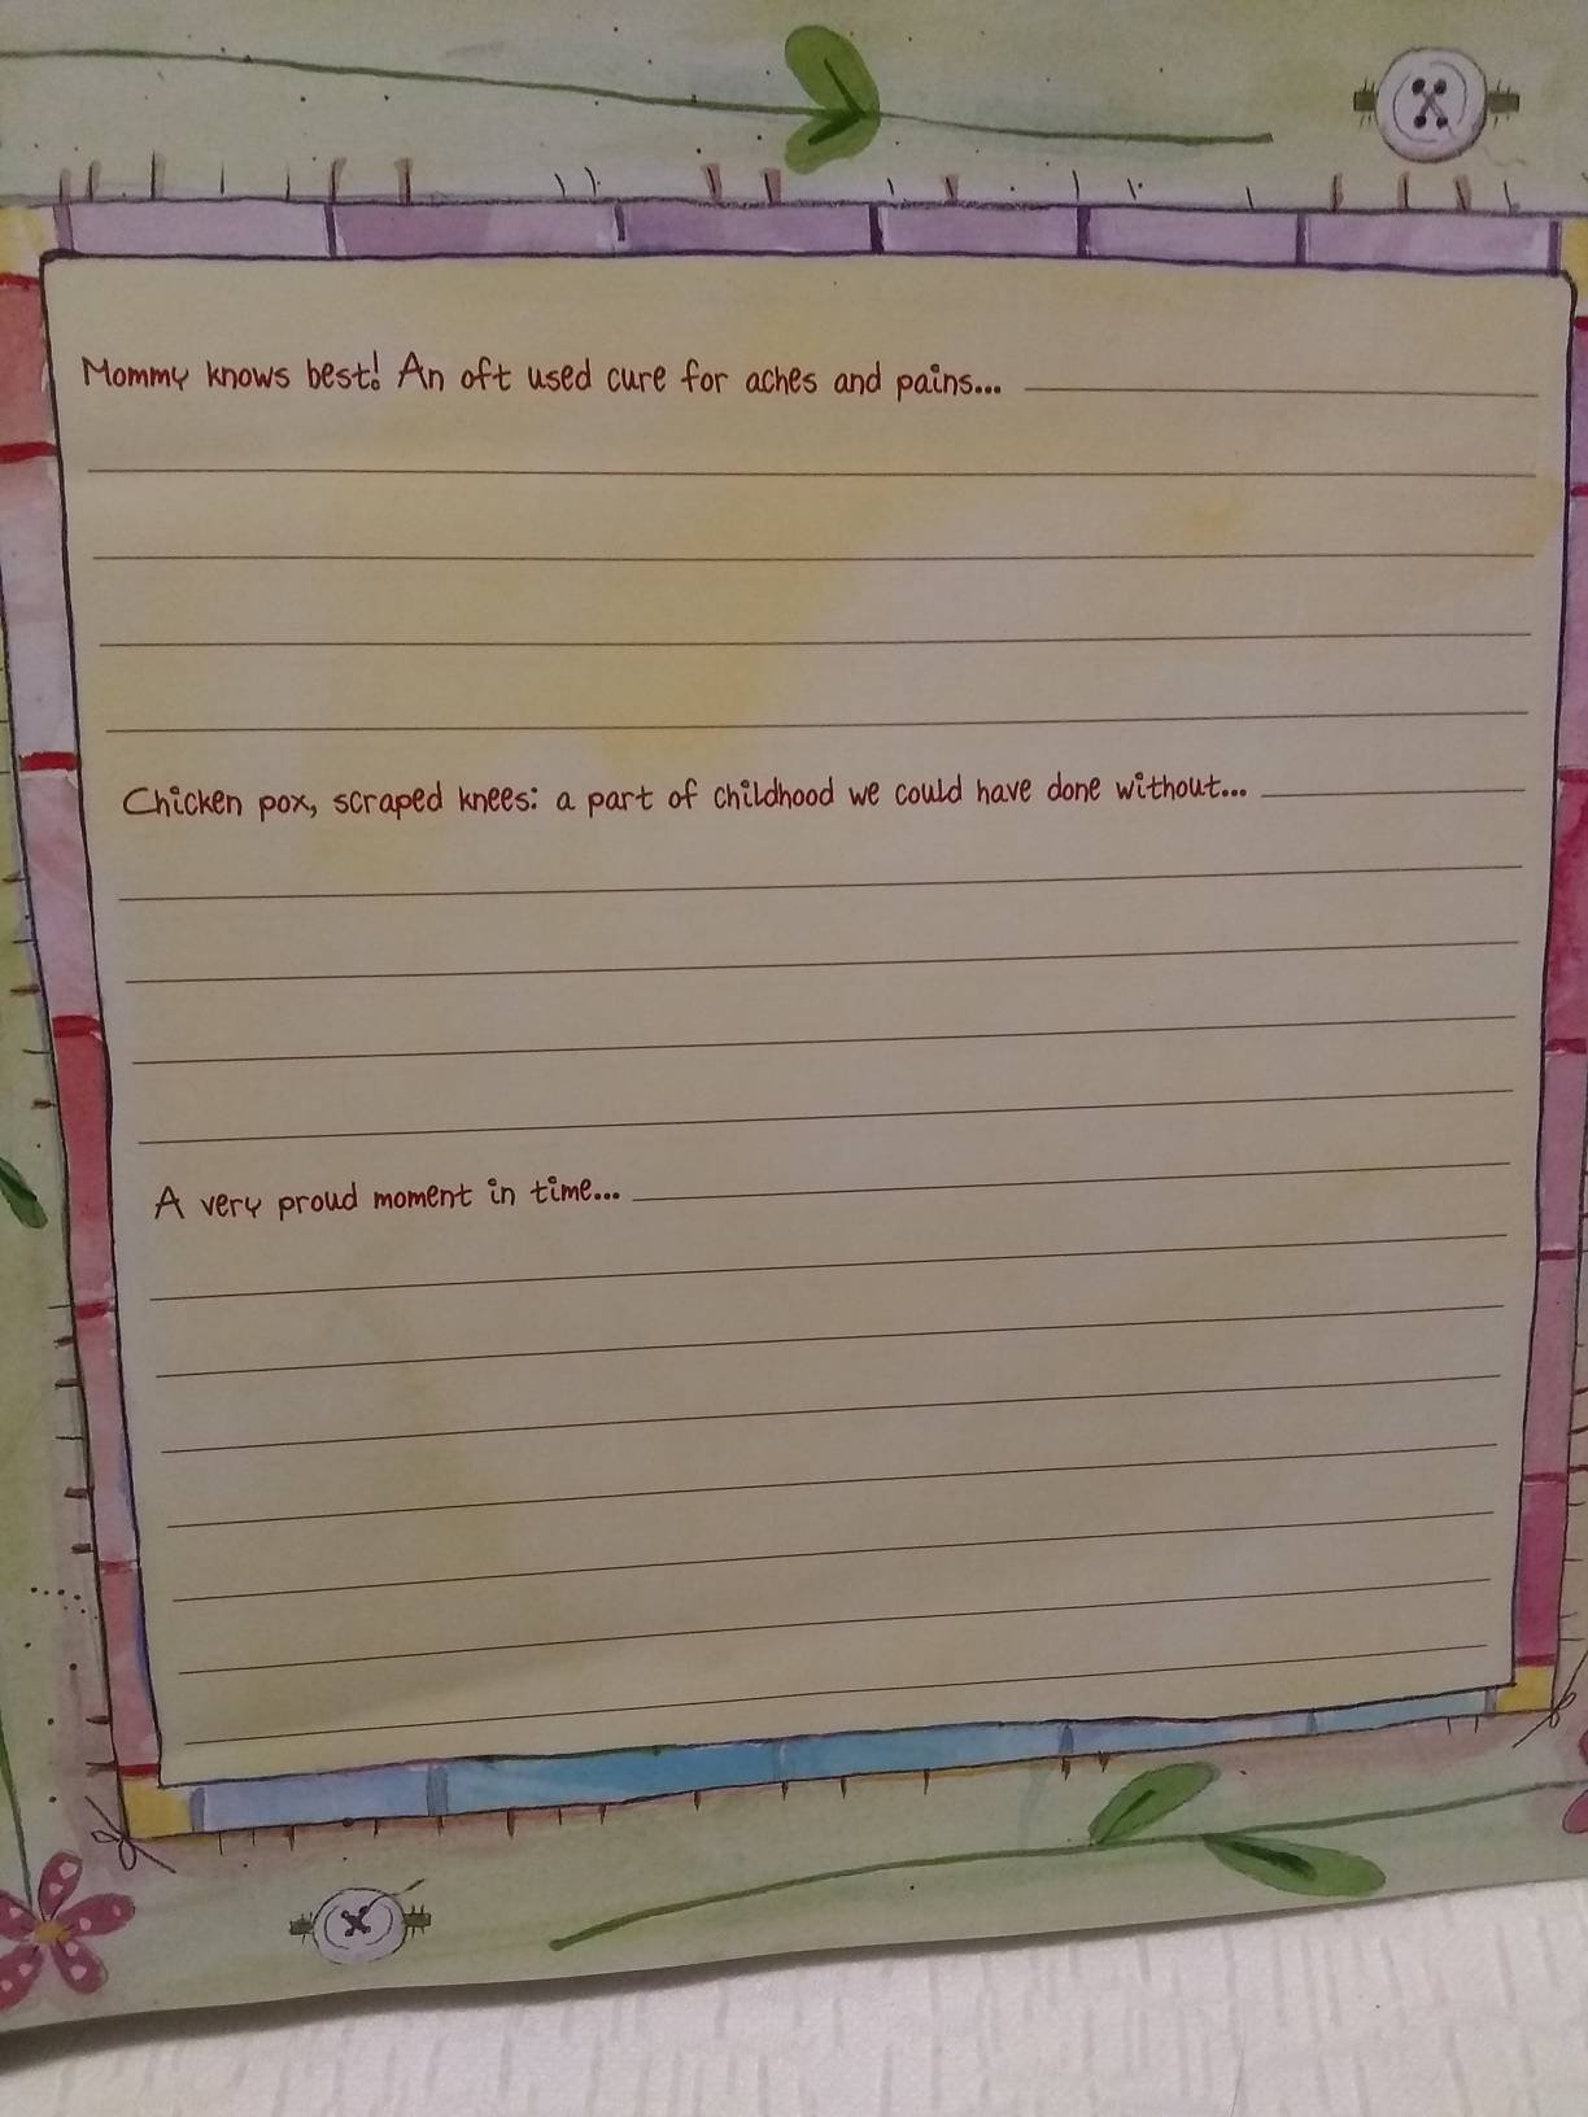 Mommy knows best! An oft used cure for aches and pains...
Chicken pox, scraped knees: a part of childhood we could have done without...
A very proud moment in time...